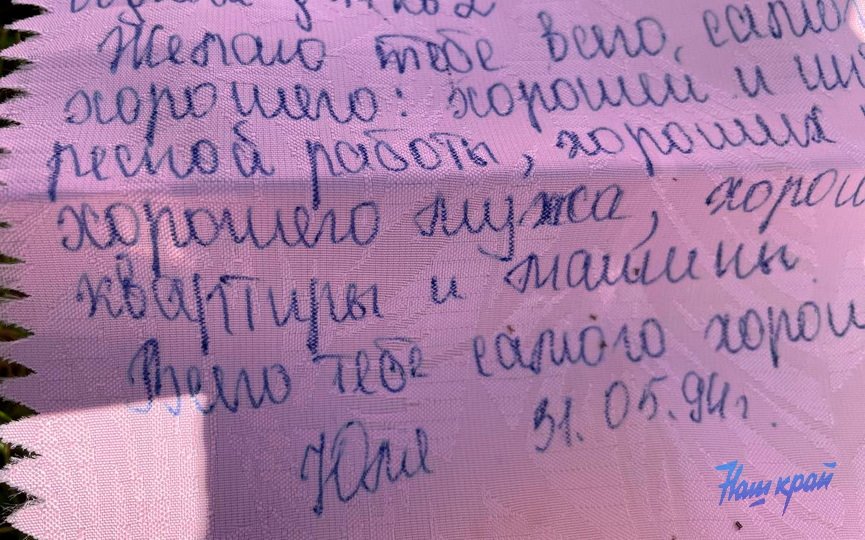 Желаю тебе всего самого
хорошего: хорошей и инте
ресной работы, хороших
хорошего мужа, хорош
квартиры и машины.
Всего тебе самого хорош
Юля 31.05.94г.
Наш край